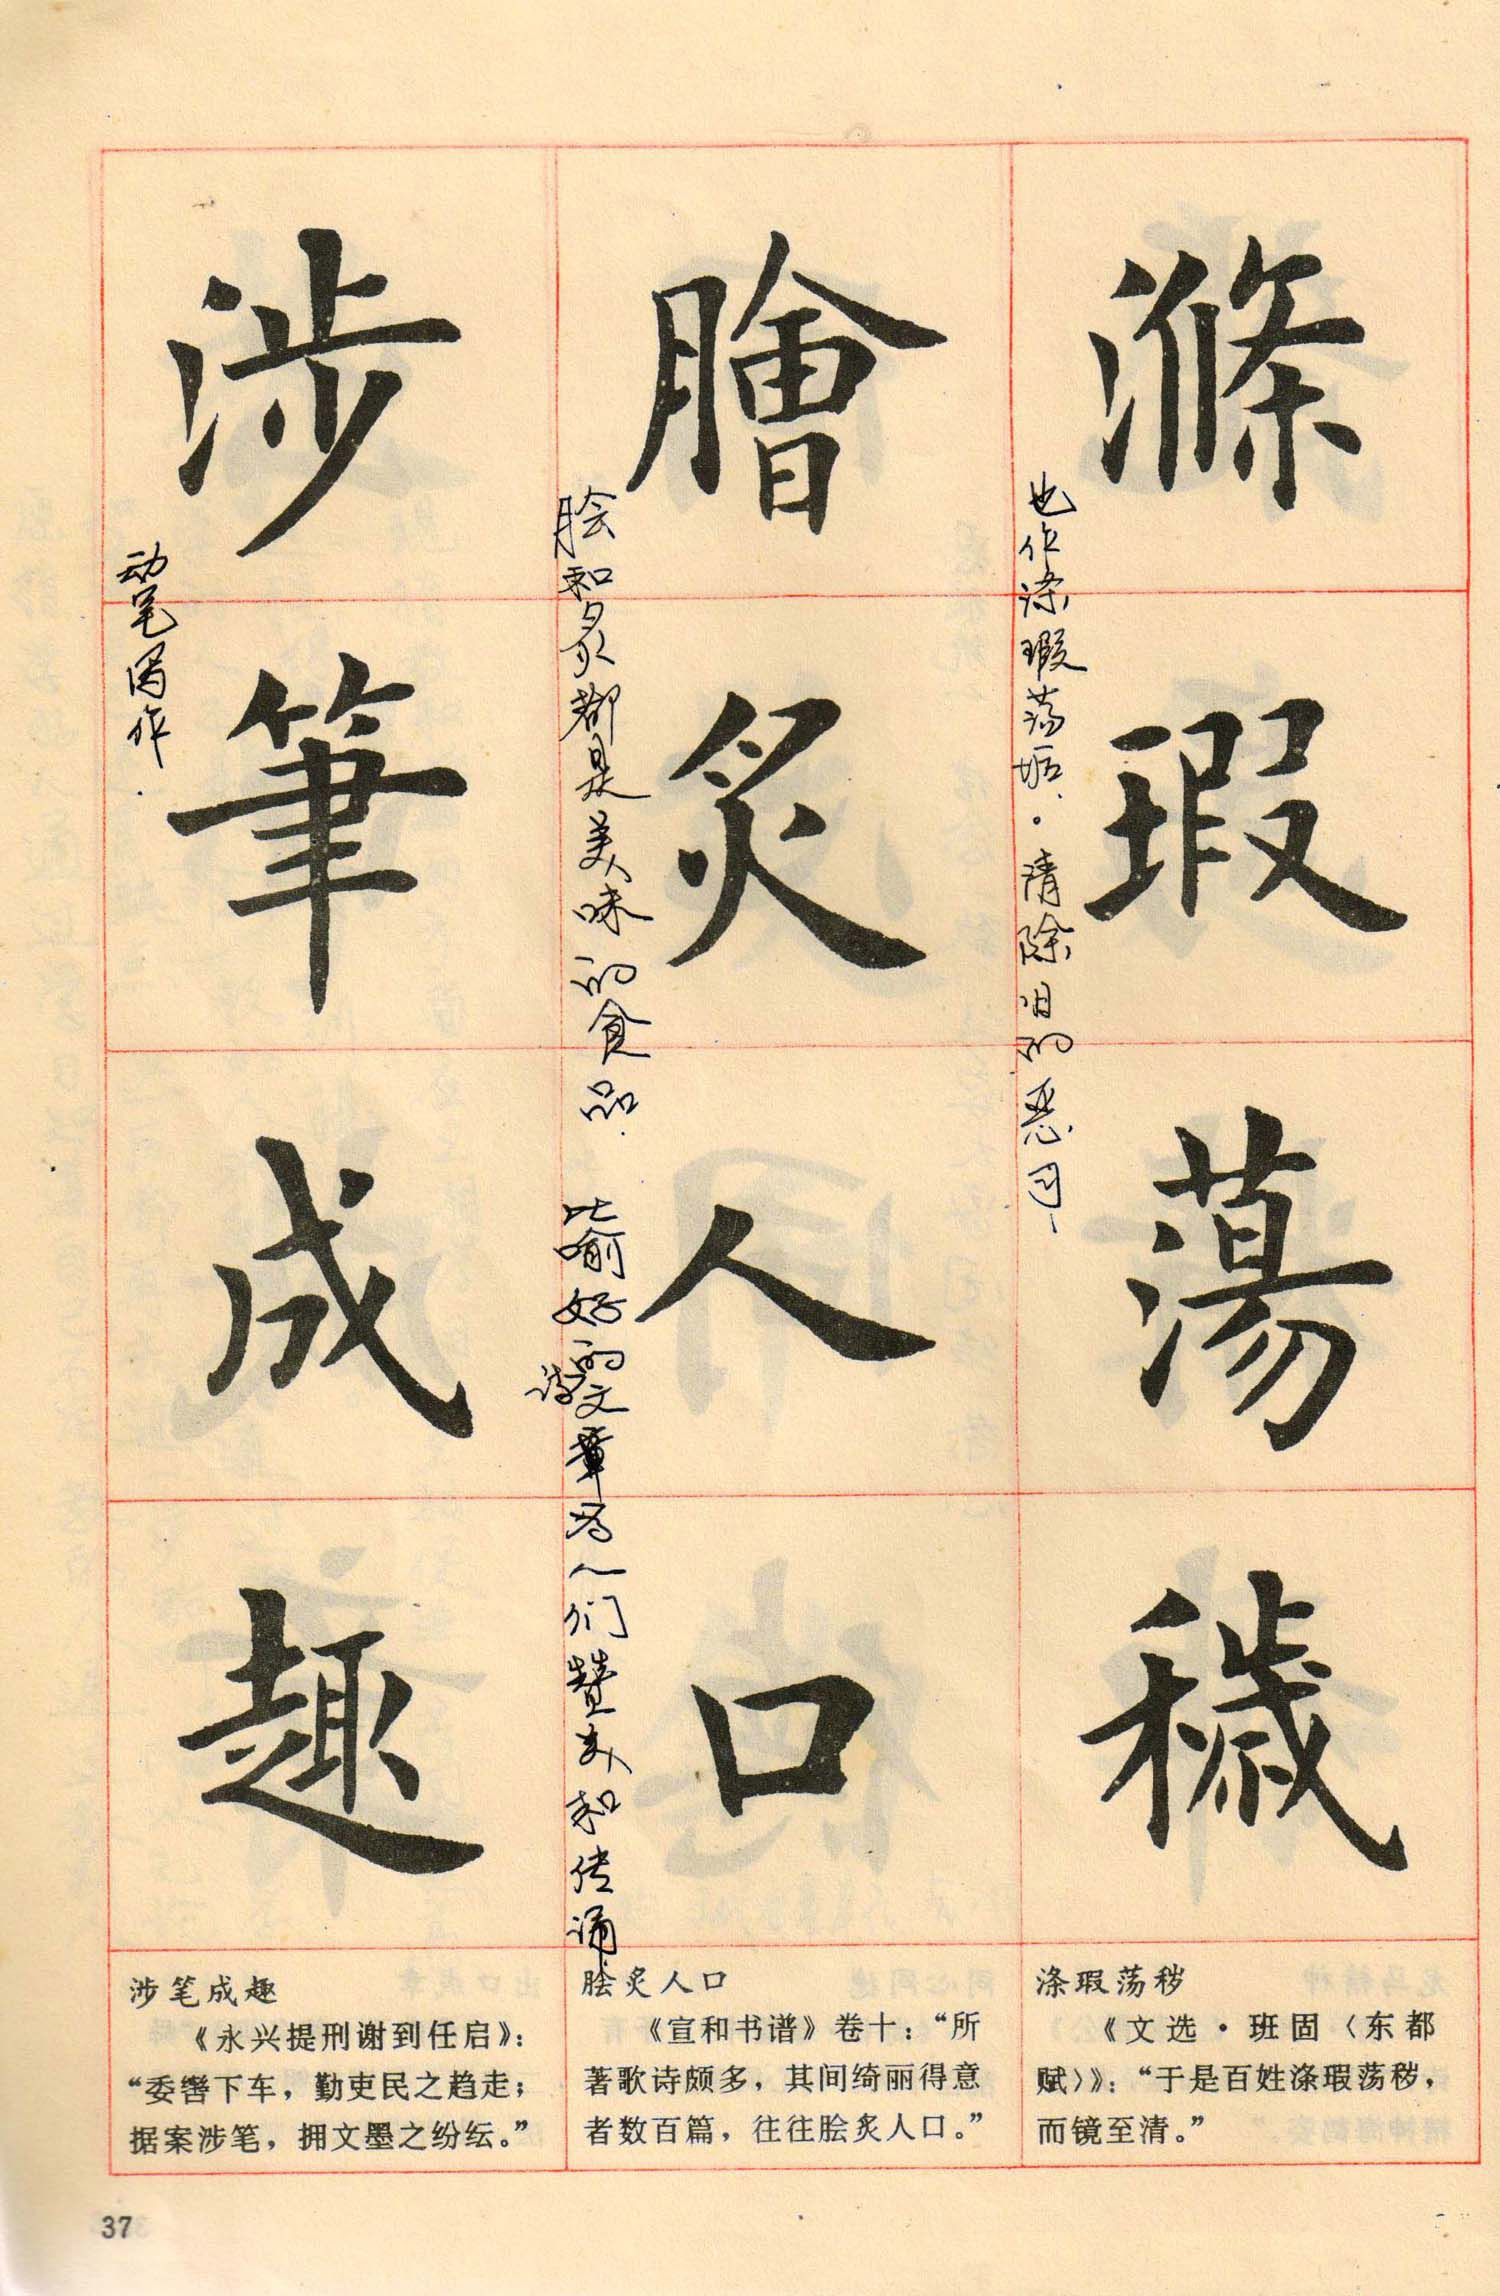 滌瑕蕩穢
也作涤瑕荡垢。清除旧的恶习
膾炙人口
脍和炙都是美味的食品.
比喻好的诗文章为人们赞美和传诵
涉筆成趣
动笔写作.
涤瑕荡秽
《文选·班固〈东都
赋〉》：“于是百姓涤瑕荡秽，
而镜至清。”
脍炙人口
《宣和书谱》卷十：“所
著歌诗颇多，其间绮丽得意
者数百篇，往往脍炙人口。”
涉笔成趣
《永兴提刑谢到任启》：
“委辔下车，勤吏民之趋走；
据案涉笔，拥文墨之纷纭。”
37